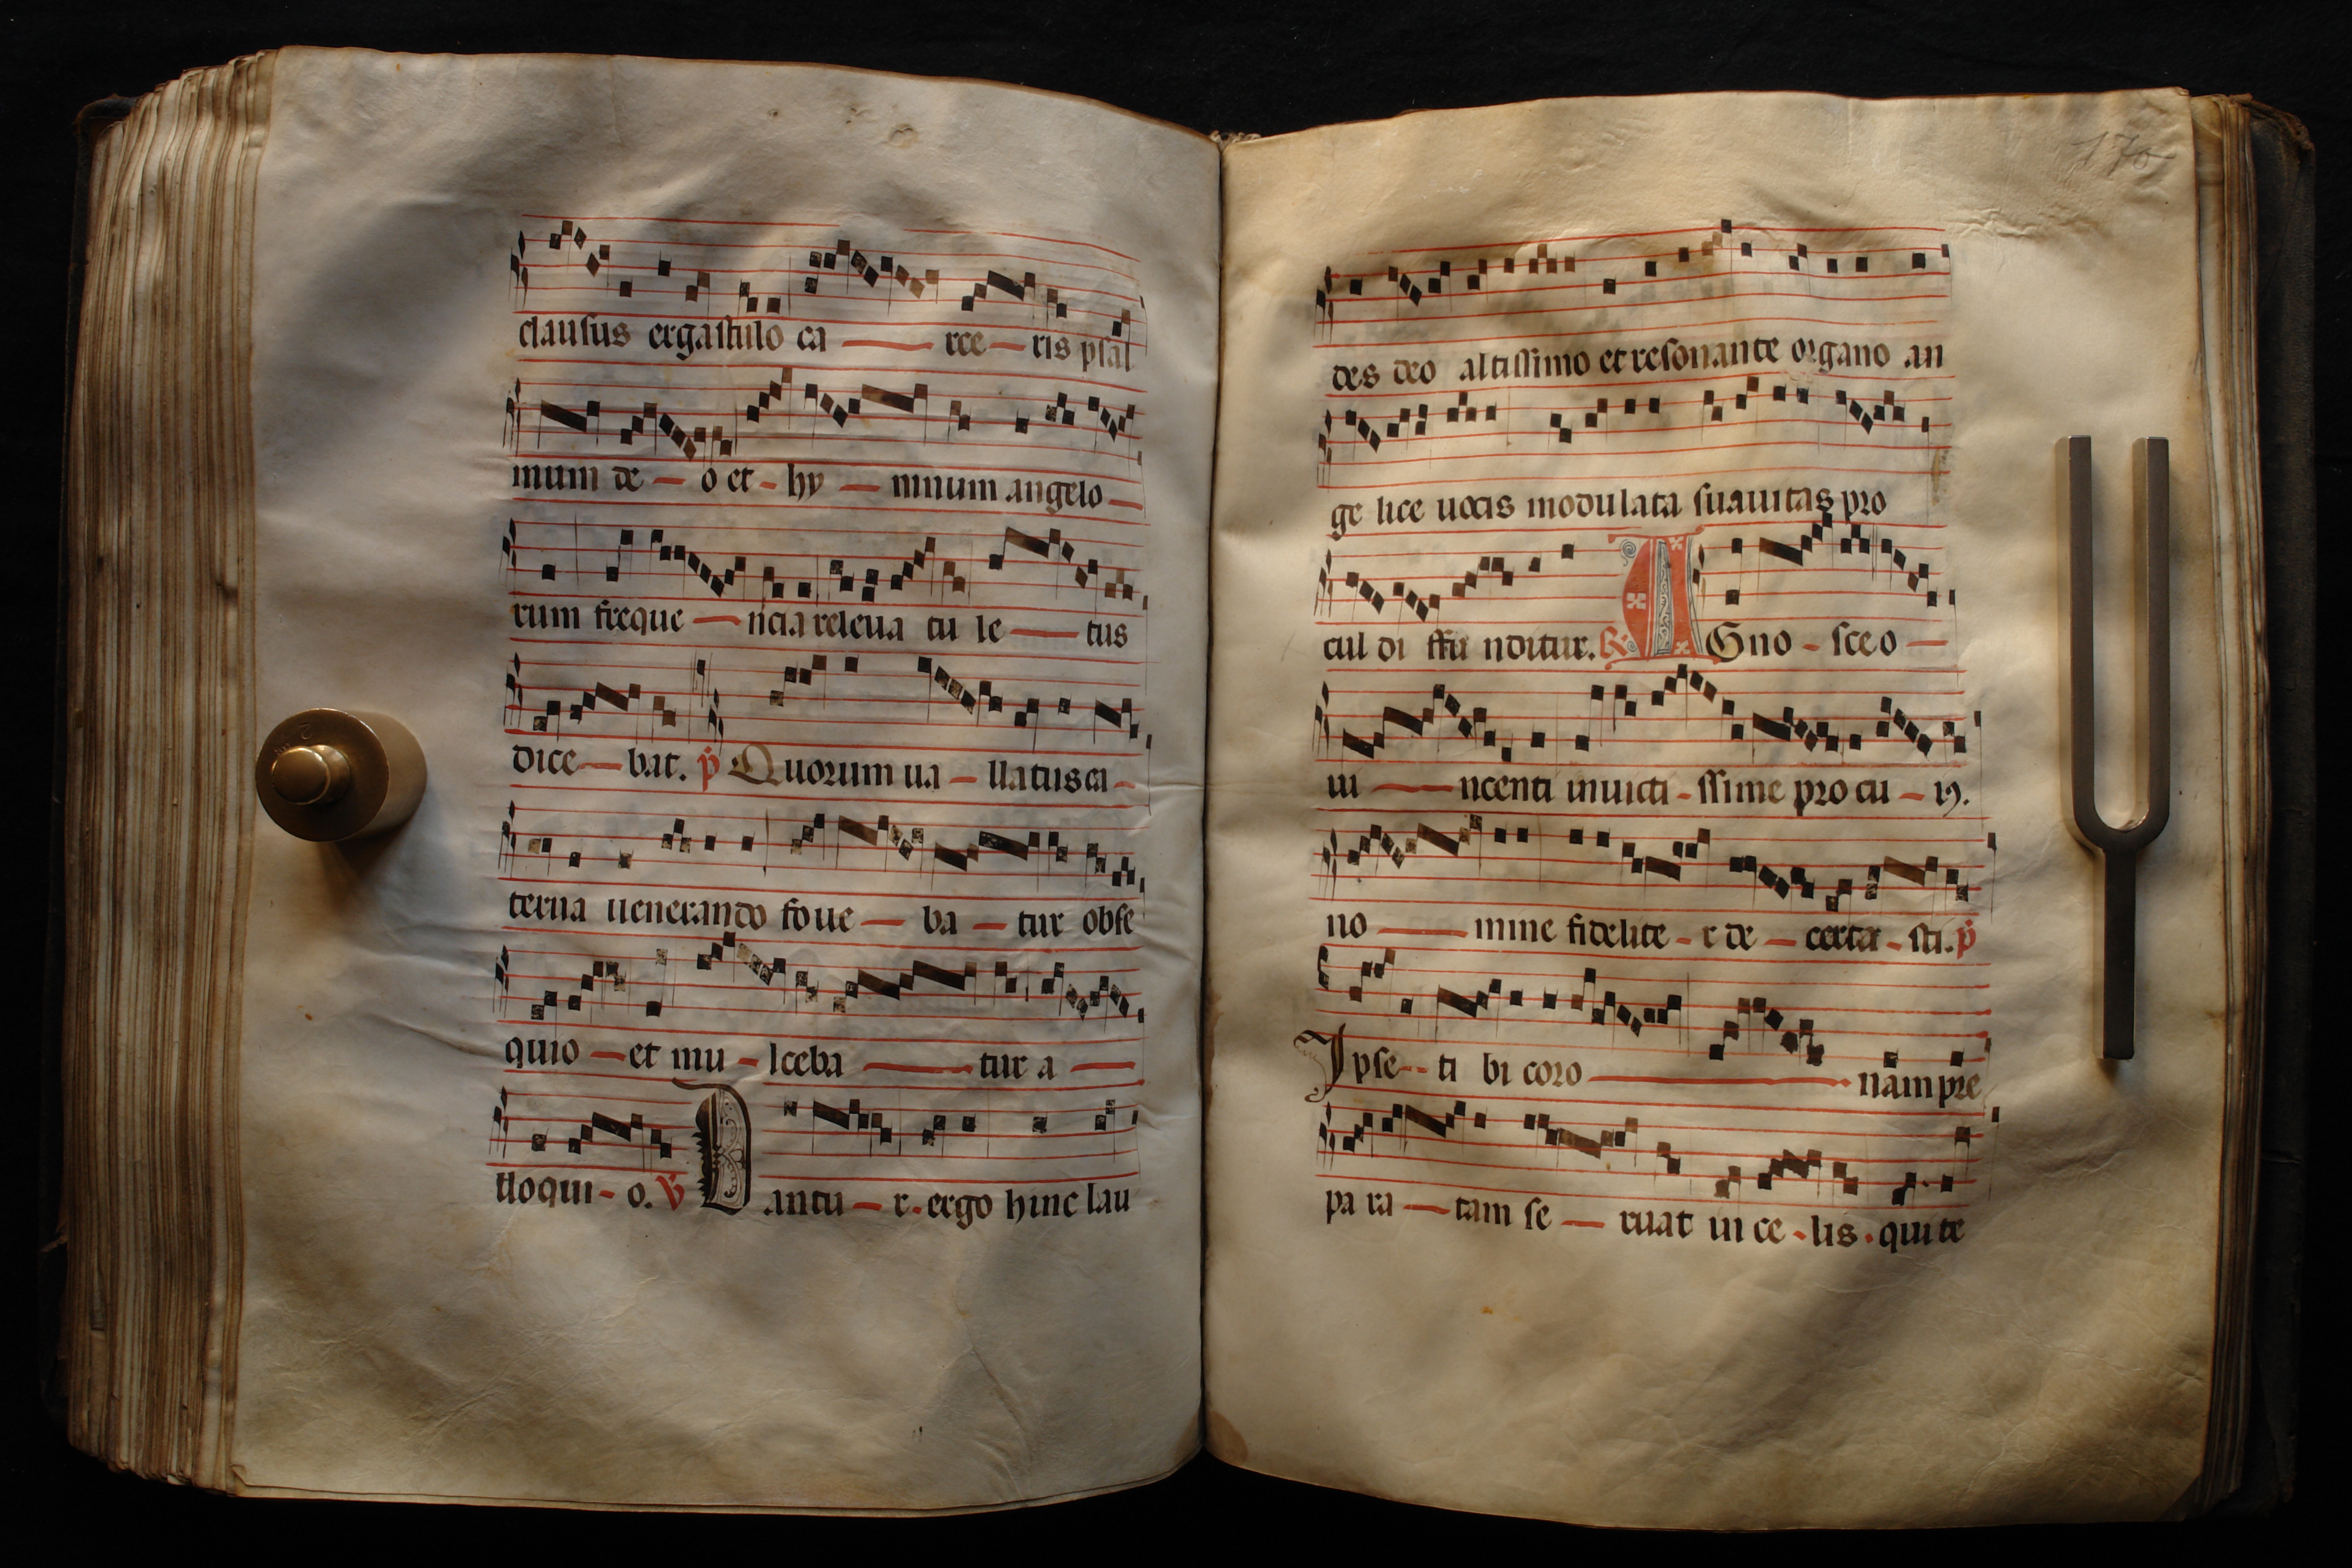 clausus ergastulo ca — rce — ris psal
mum de — o et - hy — mnum angelo —
rum freque — ncia releua tu le — tus
dice — bat. p̄ Quorum ua — llatus ca -
terua uenerando foue — ba — tur obse
quio — et mu - lceba — tur a —
lloqui - o. V̄ Dantu — r. ergo hinc lau
170
des deo altissimo et resonante organo an
ge lice uocis modulata suauitas pro
cul di ffu nditur. R. AGno - sce o —
ui — ncenti inuicti - ssime pro cu — iꝯ.
no — mine fidelite - r de — certa - sti. p̄
Ipse - - ti bi coro — nam pre
pa ra — tam se — ruat in ce - lis . qui te